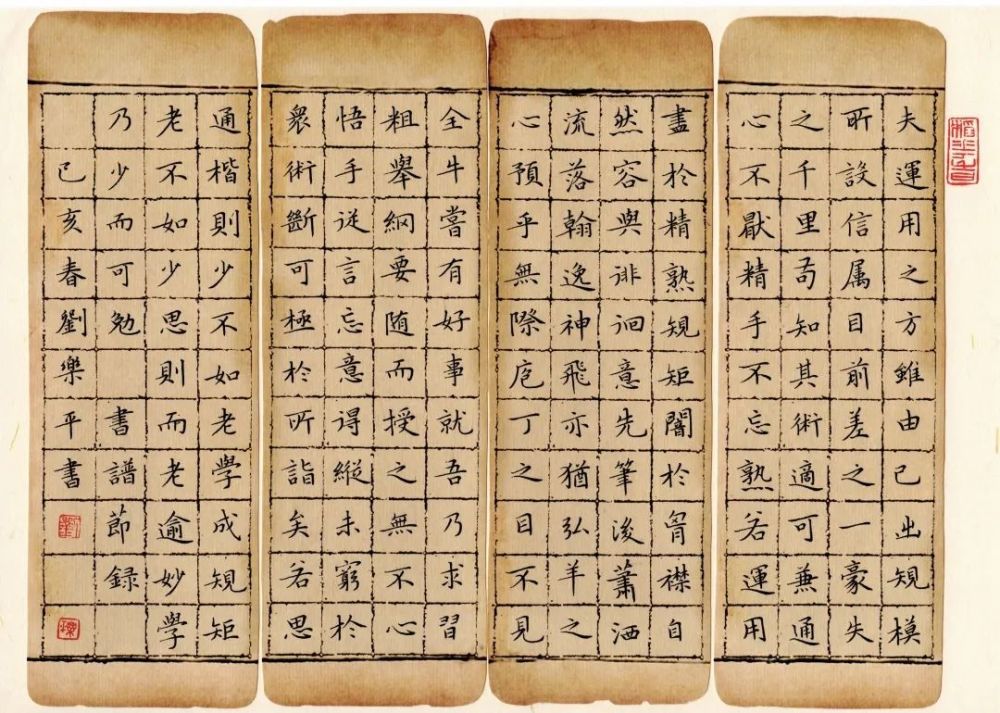 夫運用之方雖由己出規模
所設信属目前差之一豪失
之千里苟知其術適可兼通
心不厭精手不忘熟若運用
盡於精熟規矩闇於胷襟自
然容與徘徊意先筆後蕭洒
流落翰逸神飛亦猶弘羊之
心預乎無際庖丁之目不見
全牛嘗有好事就吾乃求習
粗舉綱要随而授之無不心
悟手從言忘意得縱未窮於
衆術斷可極於所詣矣若思
通楷則少不如老學成規矩
老不如少思則而老逾妙學
乃少而可勉 書譜節録
己亥春劉樂平書